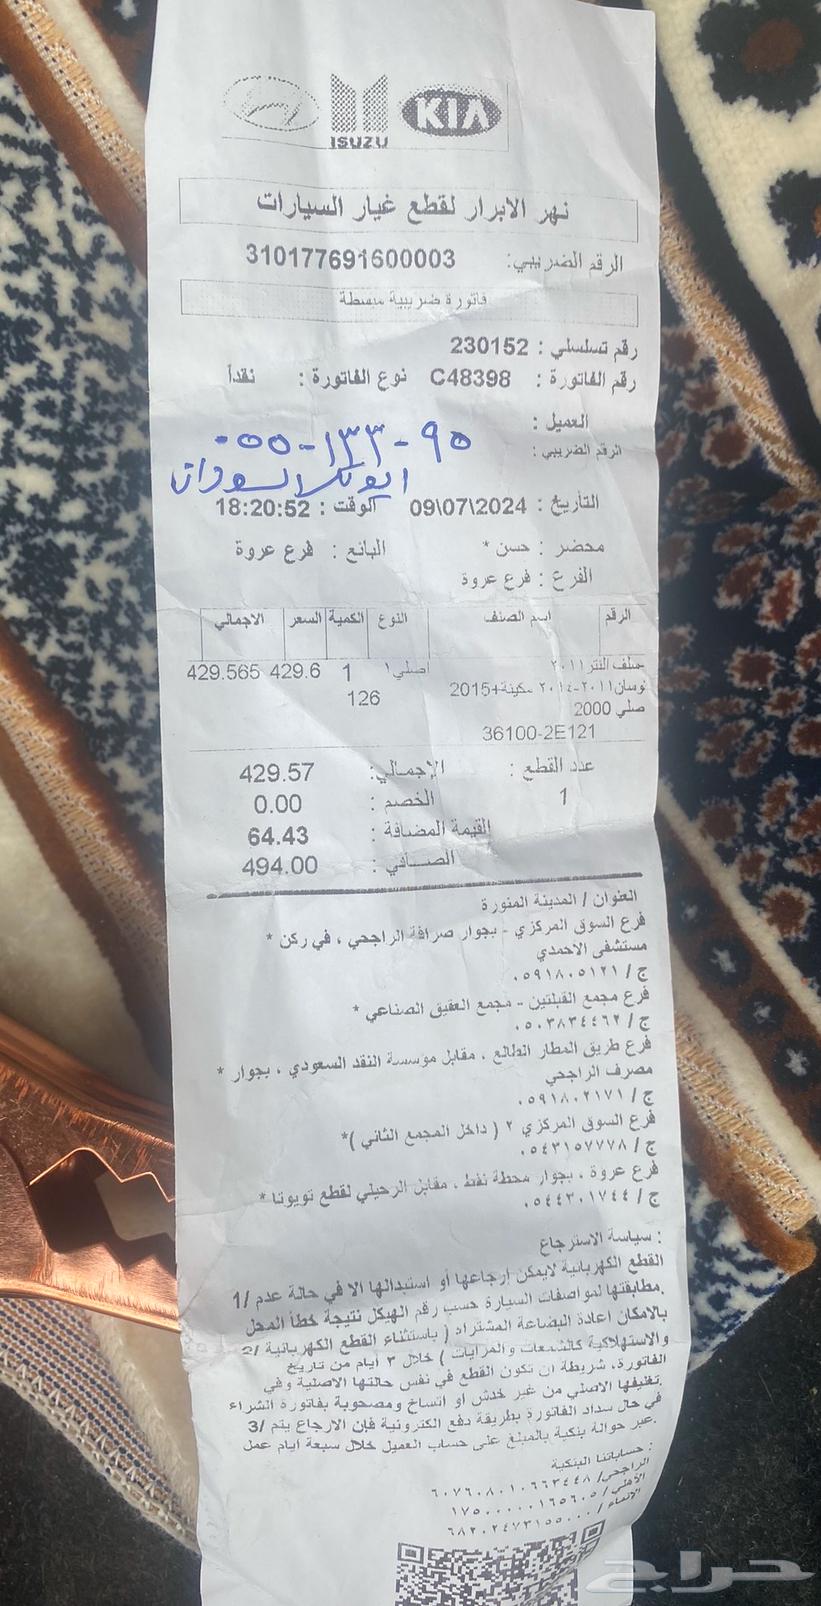 ISUZU KIA
نهر الابرار لقطع غيار السيارات
الرقم الضريبي: 310177691600003
فاتورة ضريبية مبسطة
رقم تسلسلي : 230152
رقم الفاتورة : C48398 نوع الفاتورة : نقداً
العميل :
الرقم الضريبي :
٠٥٥-١٣٣-٩٥
التأريخ : 09\07\2024 الوقت : 18:20:52
محضر : حسن * البائع : فرع عروة
الفرع : فرع عروة
الرقم اسم الصنف النوع الكمية السعر الاجمالي
سلف النتر ٢٠١١ اصلي ١ 1 429.6 429.565
توسان ٢٠١١-٢٠١٤ مكينة 2015+ 126
صلي 2000
36100-2E121
عدد القطع : الإجمالي: 429.57
1 الخصم : 0.00
القيمة المضافة : 64.43
الصافي : 494.00
العنوان / المدينة المنورة
فرع السوق المركزي - بجوار صرافة الراجحي ، في ركن *
مستشفى الاحمدي
ج / ٠٥٩١٨٠٥١٢١
فرع مجمع القبلتين - مجمع العقيق الصناعي *
ج / ٠٥٠٣٨٣٤٤٦٢
فرع طريق المطار الطالع ، مقابل موسسة النقد السعودي ، بجوار *
مصرف الراجحي
ج / ٠٥٩١٨٠٢١٧١
فرع السوق المركزي ٢ ( داخل المجمع الثاني )*
ج / ٠٥٤٣١٥٧٧٧٨
فرع عروة ، بجوار محطة نفط ، مقابل الرحيلي لقطع تويوتا *
ج / ٠٥٤٤٣٠١٧٤٤
سياسة الاسترجاع :
القطع الكهربائية لايمكن إرجاعها أو استبدالها الا في حالة عدم /1
مطابقتها لمواصفات السيارة حسب رقم الهيكل نتيجة خطأ المحل.
بالامكان اعادة البضاعة المشتراه ( باستثناء القطع الكهربائية /2
والاستهلاكية كالشمعات والمرايات ) خلال ٣ ايام من تاريخ
الفاتورة، شريطة ان تكون القطع في نفس حالتها الاصلية وفي
تغليفها الاصلي من غير خدش أو اتساخ ومصحوبة بفاتورة الشراء.
في حال سداد الفاتورة بطريقة دفع الكترونية فإن الارجاع يتم /3
عبر حوالة بنكية بالمبلغ على حساب العميل خلال سبعة ايام عمل.
حساباتنا البنكية :
الراجحي/ ٦٠٧٦٠٨٠١٠٦٦٣٤٤٨
الأهلي / ١٧٥٠٠٠٠٠١٦٥٦٠٥
الانماء / ٦٨٢٠٢٤٧٣١٥٥٠٠٠
حراج